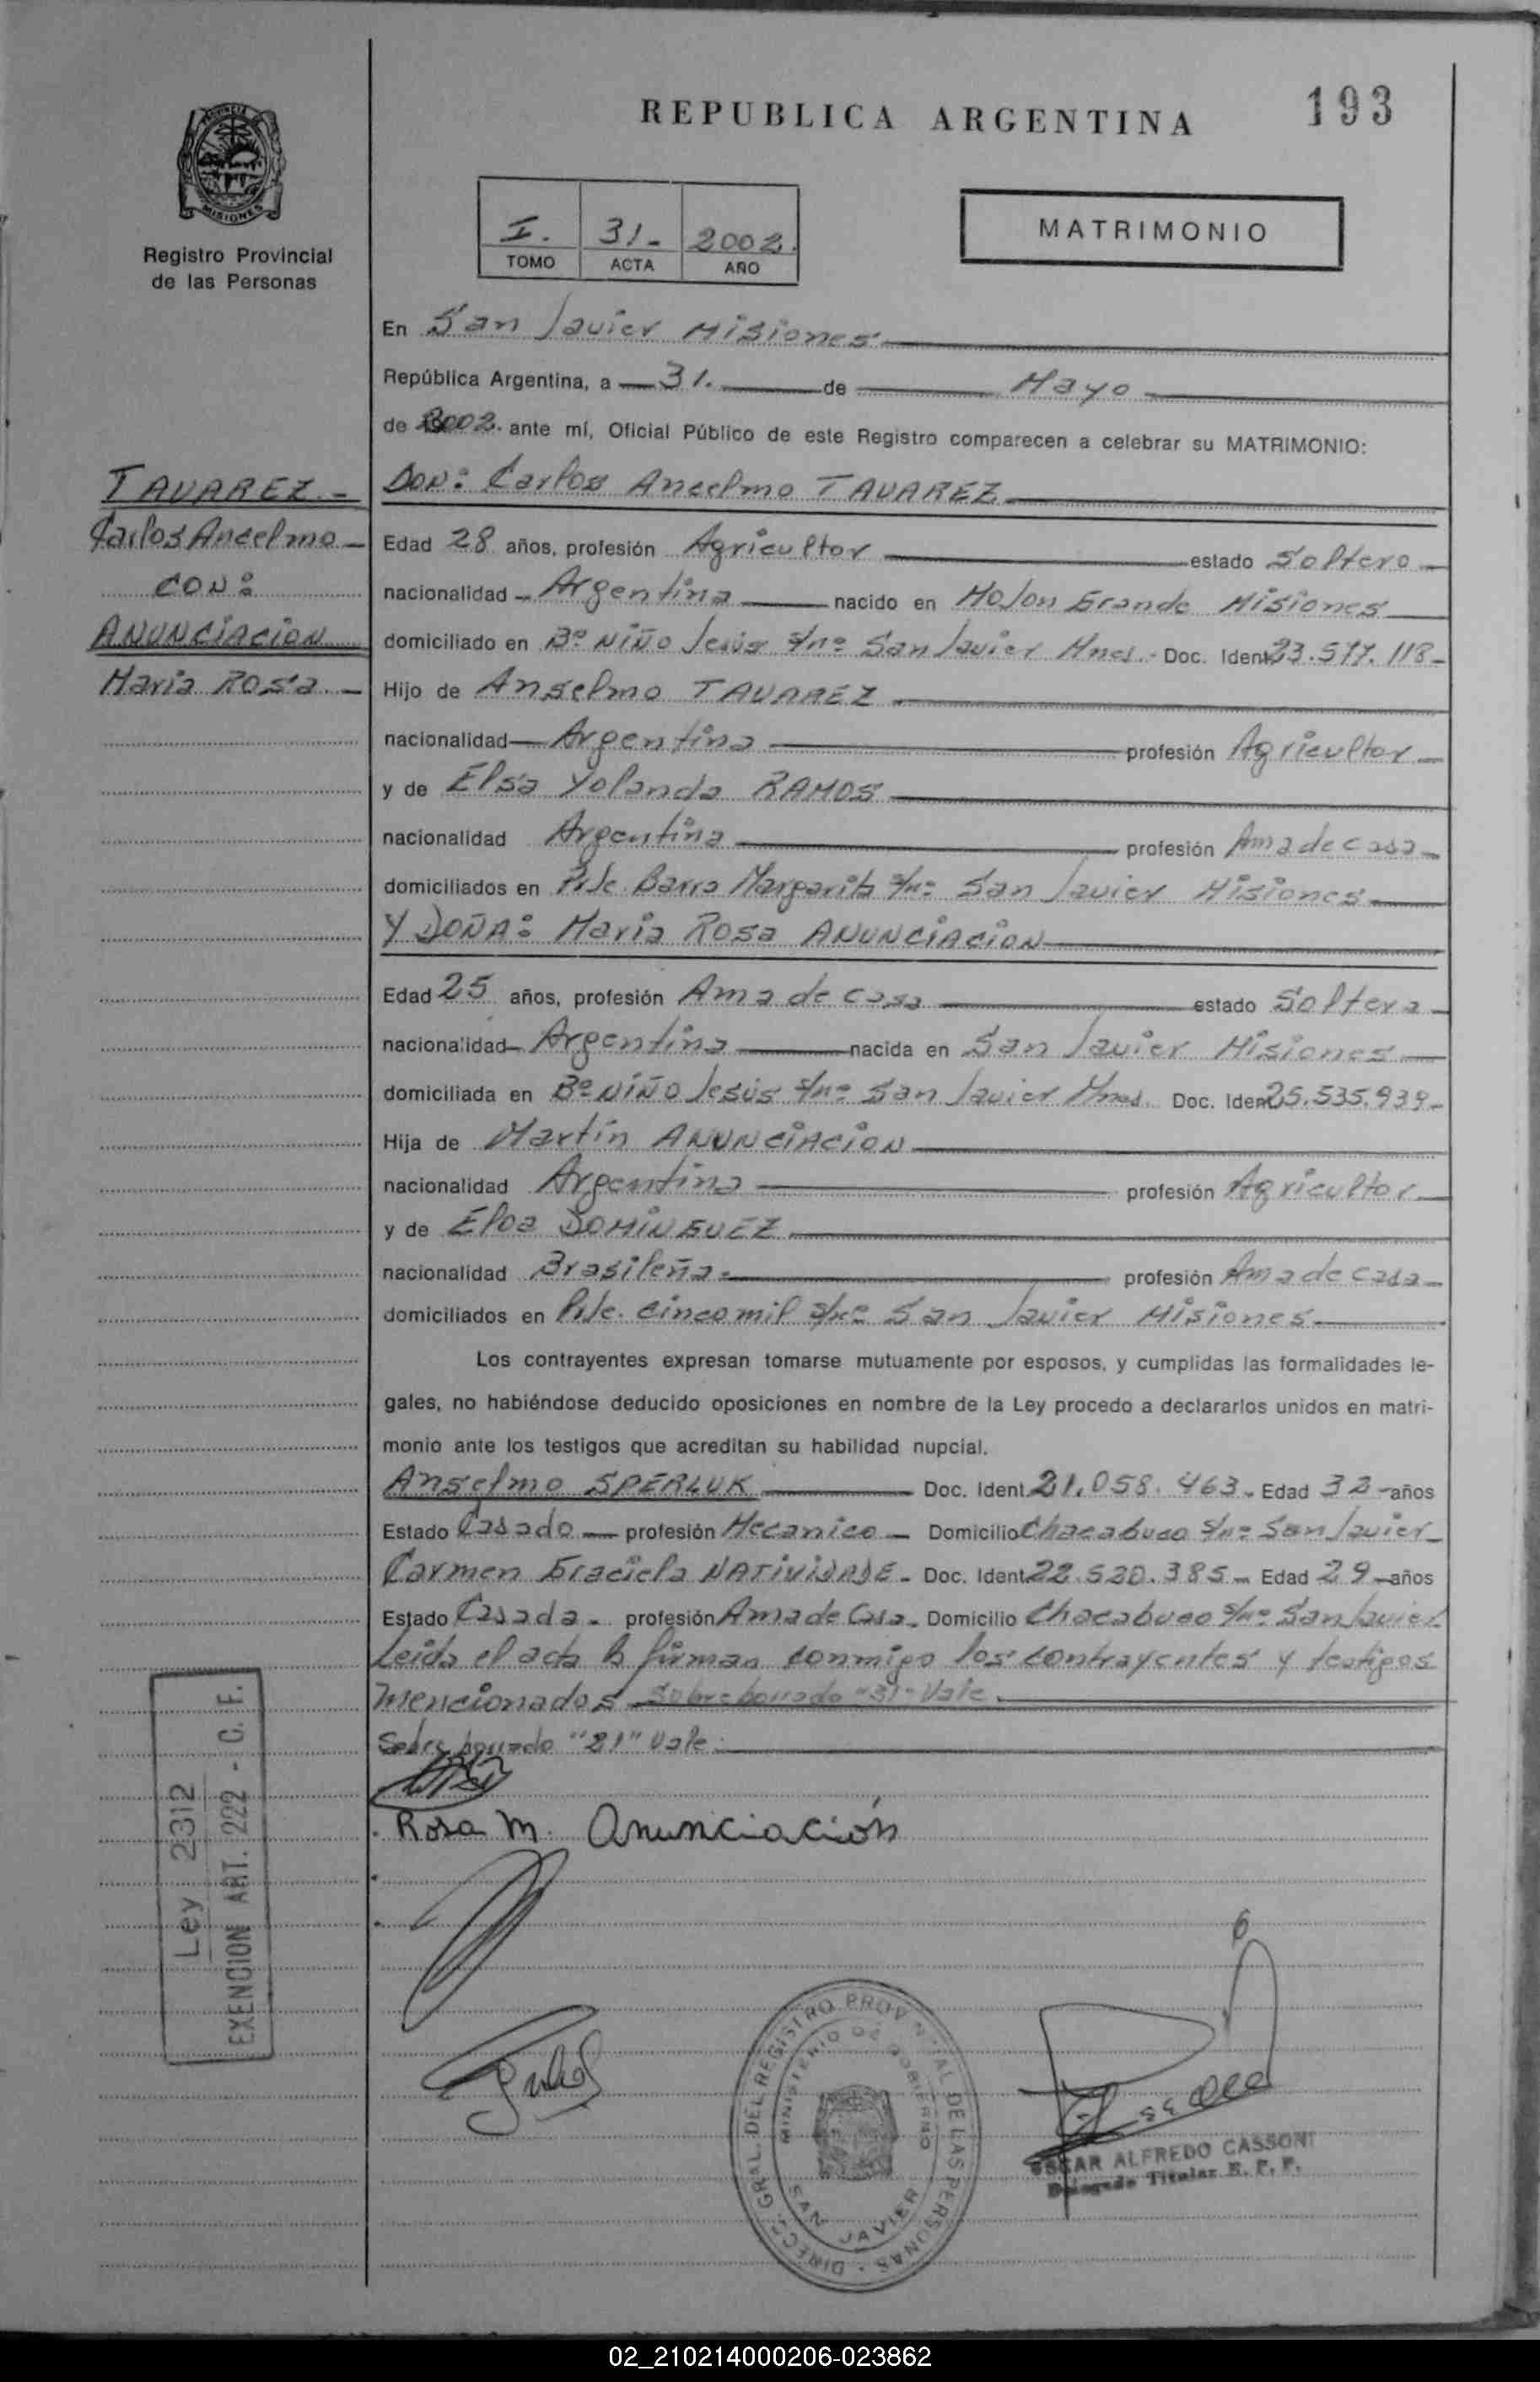 REPUBLICA ARGENTINA
193
PROVINCIA DE
MISIONES
Registro Provincial
de las Personas
I. 31- 2002.
TOMO ACTA AÑO
MATRIMONIO
En San Javier Misiones
República Argentina, a 31. de Mayo
de 2002. ante mí, Oficial Público de este Registro comparecen a celebrar su MATRIMONIO:
TAVAREZ.-
Carlos Ancelmo-
CON:
ANUNCIACION
Maria Rosa.-
DON: Carlos Ancelmo TAVAREZ
Edad 28 años, profesión Agricultor estado Soltero
nacionalidad Argentina nacido en Mojon Grande Misiones
domiciliado en Bº NIÑO Jesús s/nº San Javier Mnes.- Doc. Ident 23.577.118-
Hijo de Anselmo TAVAREZ
nacionalidad Argentina profesión Agricultor
y de Elsa Yolanda RAMOS
nacionalidad Argentina profesión Ama de casa
domiciliados en Pje. Barra Margarita s/nº San Javier Misiones
Y DOÑA: Maria Rosa ANUNCIACION
Edad 25 años, profesión Ama de casa estado Soltera
nacionalidad Argentina nacida en San Javier Misiones
domiciliada en Bº NIÑO Jesús s/nº San Javier Mnes. Doc. Ident 25.535.939-
Hija de Martín ANUNCIACION
nacionalidad Argentina profesión Agricultor
y de Eloa DOMINGUEZ
nacionalidad Brasileña. profesión Ama de casa
domiciliados en Pje. Cinco mil s/nº San Javier Misiones
Los contrayentes expresan tomarse mutuamente por esposos, y cumplidas las formalidades le-
gales, no habiéndose deducido oposiciones en nombre de la Ley procedo a declararlos unidos en matri-
monio ante los testigos que acreditan su habilidad nupcial.
Anselmo SPERLUK Doc. Ident. 21.058.463. Edad 32 años
Estado Casado profesión Mecanico Domicilio Chacabuco s/nº San Javier
Carmen Graciela NATIVIDADE. Doc. Ident. 22.520.385 Edad 29 años
Estado Casada. profesión Ama de Casa. Domicilio Chacabuco s/nº San Javier
Leida el acta la firman conmigo los contrayentes y testigos
mencionados Sobreborrado "31" Vale.
Sobre borrado "21" Vale.
Rosa M. Anunciación
Ley 2312
EXENCION ART. 222 - C. F.
DIRECC. GRAL. DEL REGISTRO PROVINCIAL DE LAS PERSONAS
MINISTERIO DE GOBIERNO
SAN JAVIER
OSCAR ALFREDO CASSONI
Delegado Titular R. P. P.
02_210214000206-023862